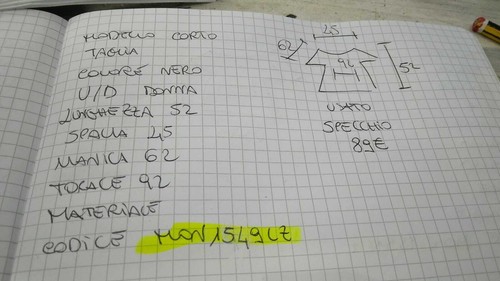 MODELLO CORTO
TAGLIA
COLORE NERO
U/D DONNA
LUNGHEZZA 52
SPALLA 45
MANICA 62
TORACE 92
MATERIALE
CODICE MON1549CZ
45
62
92
52
USATO
SPECCHIO
89€